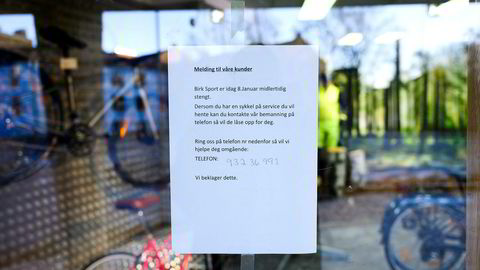 Melding til våre kunder
Birk Sport er idag 8.Januar midlertidig
stengt.
Dersom du har en sykkel på service du vil
hente kan du kontakte vår bemanning på
telefon så vil de låse opp for deg.
Ring oss på telefon nr nedenfor så vil vi
hjelpe deg omgående:
TELEFON: 932 36 991
Vi beklager dette.